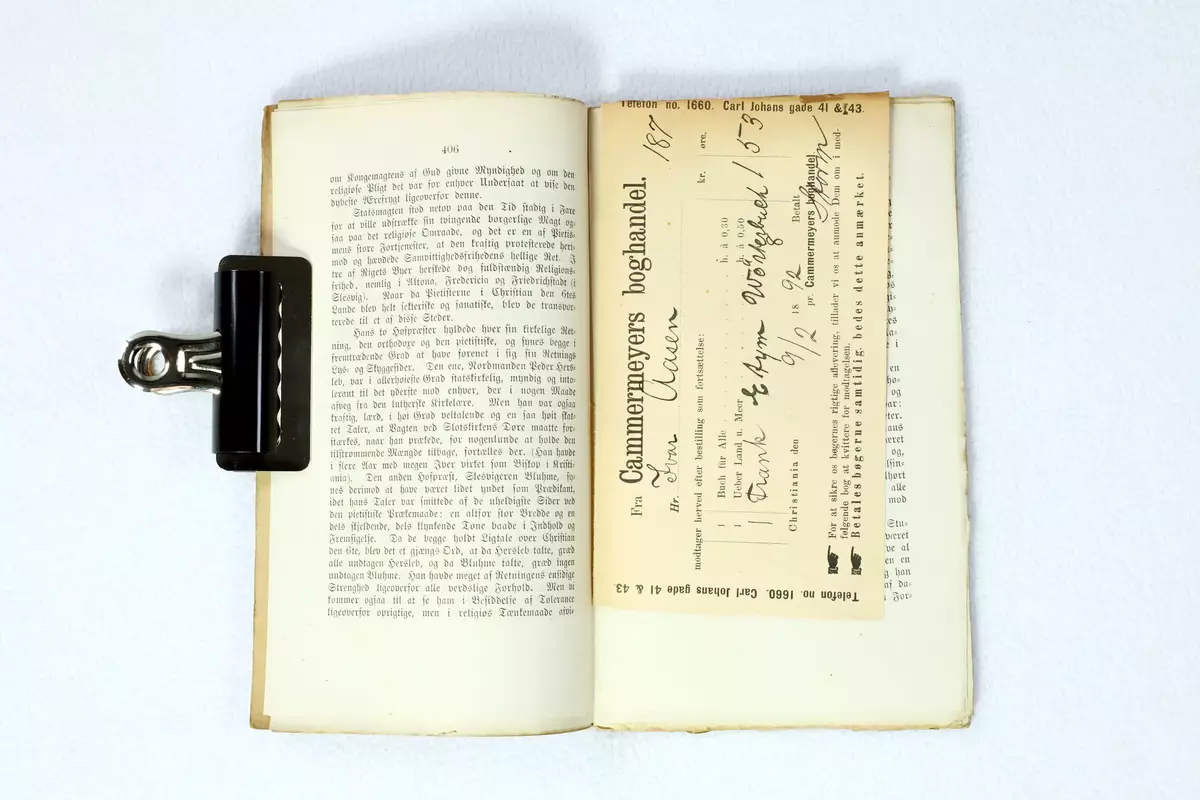 406
om Kongemagtens af Gud givne Myndighed og om den
religiøse Pligt det var for enhver Undersaat at vise den
dybeste Ærefrygt ligeoverfor denne.
Statsmagten stod netop paa den Tid stadig i Fare
for at ville udstrække sin tvingende borgerlige Magt og-
saa paa det religiøse Omraade, og det er en af Pietis-
mens store Fortjenester, at den kraftig protesterede heri-
mod og hævdede Samvittighedsfrihedens hellige Ret. I
tre af Rigets Byer herskede dog fuldstændig Religions-
frihed, nemlig i Altona, Fredericia og Friedrichstadt (i
Slesvig). Naar da Pietisterne i Christian den 6tes
Lande blev helt sekteriske og fanatiske, blev de transpor-
terede til et af disse Steder.
Hans to Hofpræster hyldede hver sin kirkelige Ret-
ning, den orthodoxe og den pietistiske, og synes begge i
fremtrædende Grad at have forenet i sig sin Retnings
Lys- og Skyggesider. Den ene, Nordmanden Peder Hers-
leb, var i allerhøieste Grad statskirkelig, myndig og into-
lerant til det yderste mod enhver, der i nogen Maade
afveg fra den lutherske Kirkelære. Men han var ogsaa
kraftig, lærd, i høi Grad veltalende og en saa høit skat-
tet Taler, at Vagten ved Slotskirkens Døre maatte for-
stærkes, naar han prækede, for nogenlunde at holde den
tilstrømmende Mængde tilbage, fortælles der. (Han havde
i flere Aar med megen Iver virket som Biskop i Kristi-
ania). Den anden Hofpræst, Slesvigeren Bluhme, sy-
nes derimod at have været lidet yndet som Prædikant,
idet hans Taler var smittede af de uheldigste Sider ved
den pietistiske Prækemaade: en altfor stor Bredde og en
dels skjeldende, dels klynkende Tone baade i Indhold og
Fremsigelse. Da de begge holdt Ligtale over Christian
den 6te, blev det et gjængs Ord, at da Hersleb talte, græd
alle undtagen Hersleb, og da Bluhme talte, græd ingen
undtagen Bluhme. Han havde meget af Retningens ensidige
Strenghed ligeoverfor alle verdslige Forhold. Men vi
kommer ogsaa til at se ham i Besiddelse af Tolerance
ligeoverfor oprigtige, men i religiøs Tænkemaade afvi-
Telefon no. 1660. Carl Johans gade 41 & 43.
Fra Cammermeyers boghandel.
Hr. Ivar Aasen 187
modtager herved efter bestilling som fortsættelse: kr. øre.
1 Buch für Alle h. à 0,30
1 Ueber Land u. Meer h. à 0,50
1 Frank Etym Wörterbuch 1 53
Christiania den 9/2 1892
Betalt
pr. Cammermeyers boghandel
Storm
For at sikre os bøgernes rigtige aflevering, tillader vi os at anmode Dem om i med-
følgende bog at kvittere for modtagelsen.
Betales bøgerne samtidig, bedes dette anmærket.
Telefon no. 1660. Carl Johans gade 41 & 43.